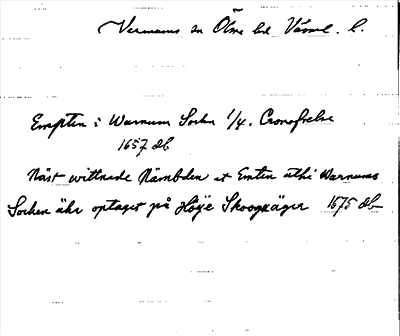 Varnums sn Ölme hd Värml. l.
Emptin i Warnum Sochn 1/4. Cronofrelse
1657 db
Näst wittnade Nämbden at Emtin uthi Warnums
Sochen ähr optaget på Höije Skoogzäger 1675 db